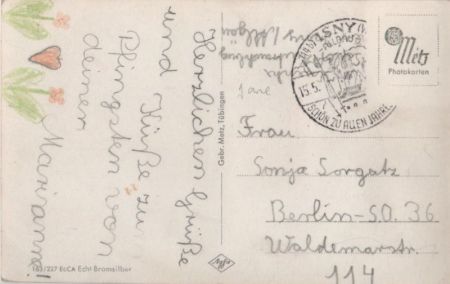 Herzlichen Grüße
und Küße zu
Pfingsten von
deinen
Marianne!
163/227 EcCA Echt Bromsilber
Gebr. Metz, Tübingen
ISNY
15.5.
SCHÖN ZU ALLEN JAHRE
Metz
Photokarten
Agfa
Frau
Sonja Sorgatz
Berlin-S.O. 36
Waldemarstr.
114